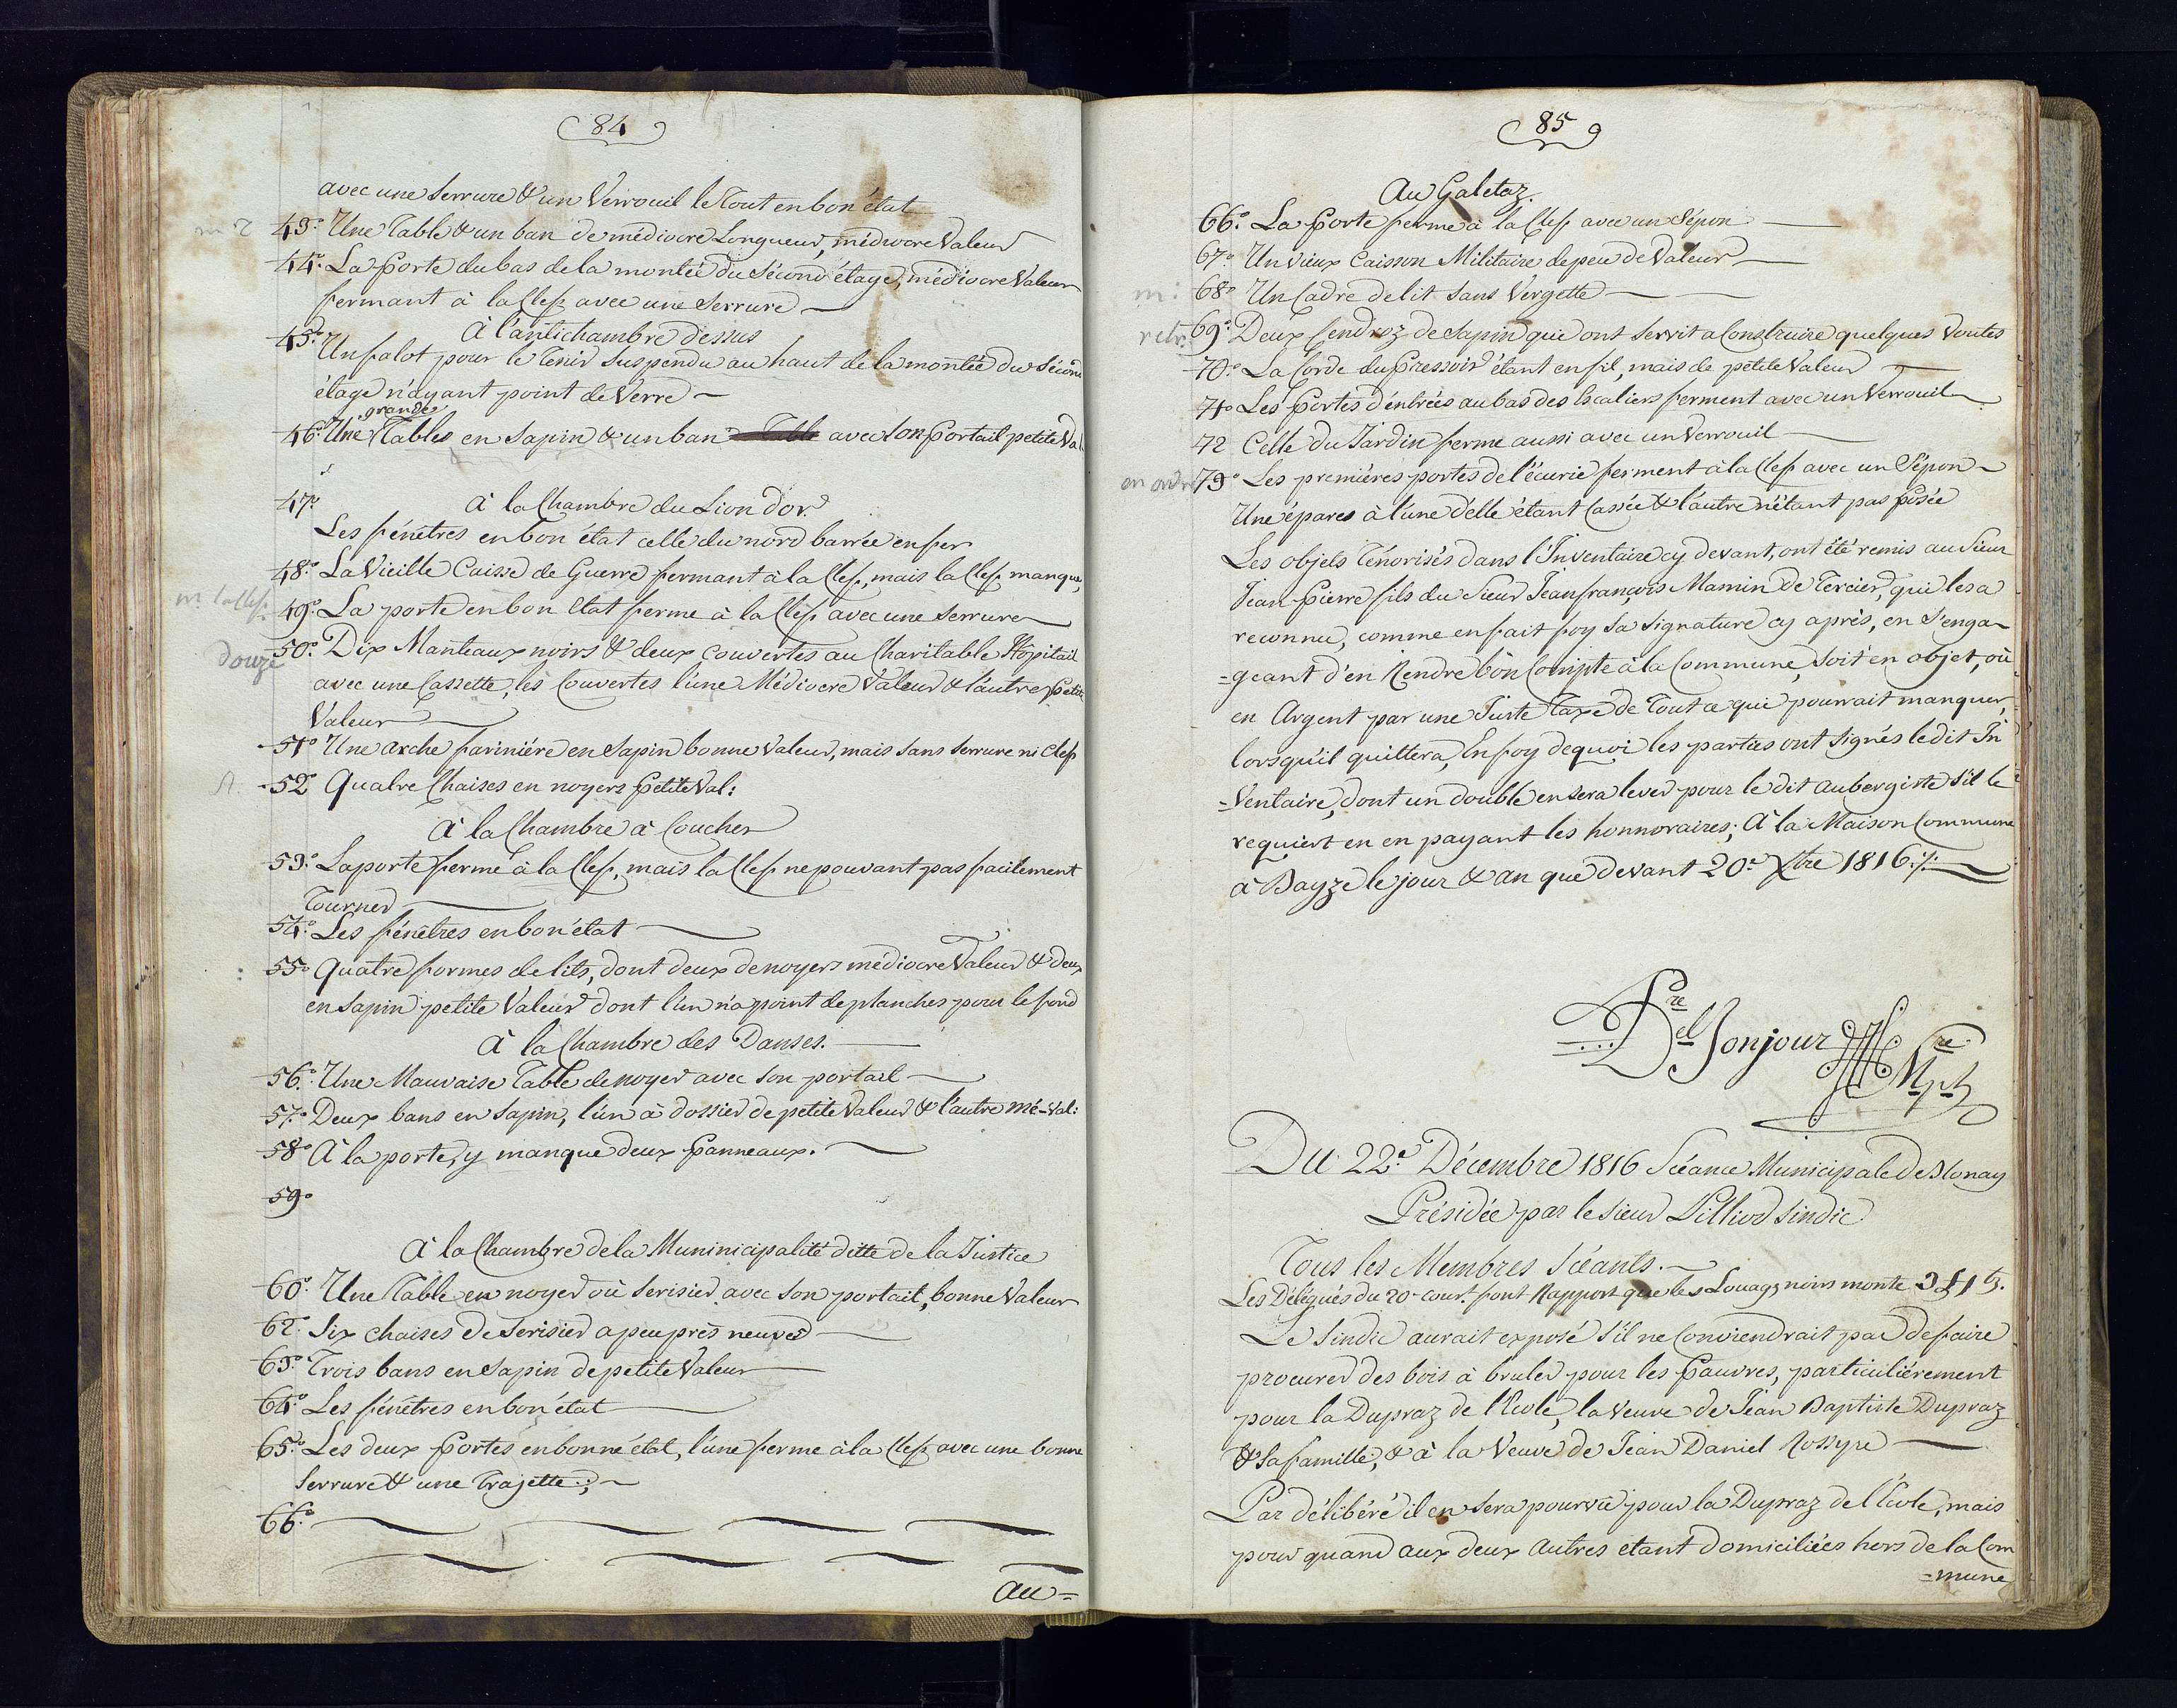 84
avec une Serrure & un Verrouil le Tout en bon état
43.° Une Table & un ban de médiocre Longueur, médiocre Valeur
44.° La Porte du bas de la montée du Sécond étage, médiocre Valeur
fermant à la Clef avec une Serrure
à l'antichambre dessus
45.° Un falot pour le Tenir suspendu au haut de la montée du Sécond
étage n'ayant point de Verre
grande
46.° Une Tables en Sapin & un ban avec son Portail petite Val
47.° à la Chambre du Lion d'or.
Les fénêtres en bon état celle du nord barrée en fer
48.° La Vieille Caisse de Guerre fermant à la Clef, mais la Clef manque,
m. la clef.
49.° La porte en bon Etat ferme à la Clef avec une serrure
50.° Dix Manteaux noirs & deux couvertes au Charitable Hôpitail
douze
avec une Cassette, les Couvertes l'une Médiocre Valeur & l'autre petite
Valeur
51.° Une arche farinière en Sapin bonne Valeur, mais sans serrure ni Clef
52.° Quatre Chaises en noyers Petite Val:
à la Chambre à Coucher
53.° La porte fermé à la Clef, mais la Clef ne pouvant pas facilement
Tourner
54.° Les fénêtres en bon état
55.° Quatre formes de lits, dont deux de noyers médiocre Valeur & deux
en sapin petite Valeur dont l'un n'a point de planches pour le fond
à la Chambre des Danses.
56.° Une Mauvaise Table de noyer avec son portail
57.° Deux bans en Sapin, l'un à dossier de petite Valeur & l'autre mé-val:
58.° à la porte, y manque deux Panneaux.
59.°
à la Chambre de la Muninicipalité ditte de la Justice
60.° Une Table en noyer où serisier avec son portail, bonne Valeur
62.° Six chaises de Serisier apeuprès neuves
63.° Trois bans en Sapin de petite Valeur
64.° Les fénêtres en bon état
65.° Les deux Portes en bonne état, l'une ferme à la Clef avec une bonne
Serrure & une Trajette;
66.°
au=
85
Au Galetaz.
66.° La Porte ferme à la Clef avec un Sépon
67.° Un vieux Caisson Militaire de peu de Valeur
m:
68.° Un Cadre de lit sans Vergette
retr.
69.° Deux Cendroz de Sapin qui ont servit a Construire quelques Voutes
70.° La Corde du Pressoir étant en fil, mais de petite Valeur
71.° Les Portes d'entrées au bas des Escaliers ferment avec un Verrouil
72 Celle du Jardin ferme aussi avec un Verrouil
73.° Les premières portes de l'écurie ferment à la Clef avec un Sépon
Une épares à l'une d'elle étant Cassée & l'autre n'étant pas posée
Les objets Ténorisés dans l'Inventaire cy devant, ont été remis au Sieur
Jean Pierre fils du Sieur Jean françois Mamin de Tercier, qui les a
reconnu, comme en fait foy sa signature cy après, en s'enga-
=geant d'en Rendre bon Compte à la Commune, soit en objet, où
en Argent par une Juste Taxe de Tout ce qui pourrait manquer,
lorsqu'il quittera, En foy dequoi les parties ont signés ledit In
=Ventaire, dont un double en sera lever pour le dit aubergiste s'il le
requiert en en payant les honnoraires; à la Maison Commune
à Bayze le jour & an que devant 20.e Xbre 1816./.
Bonjour
Du 22.e Décembre 1816 Scéance Municipale de Blonay
Présidée par le Sieur Pilliod Sindic
Tous les Membres Scéants.
Les Délégués du 20.e cour.t font Rapport que les Louags noirs monte
Le Sindic aurait exposé s'il ne Conviendrait pas de faire
procurer des bois à bruler pour les Pauvres, particuliérement
pour la Dupraz de l'Ecole, la Veuve de Jean Baptiste Dupraz
& Sa famille, & à la Veuve de Jean Daniel Rossyre
Par délibéré il en sera pourvû pour la Dupraz de l'Ecole, mais
pour quand aux deux Autres etant domiciliées hors de la Com
=mune